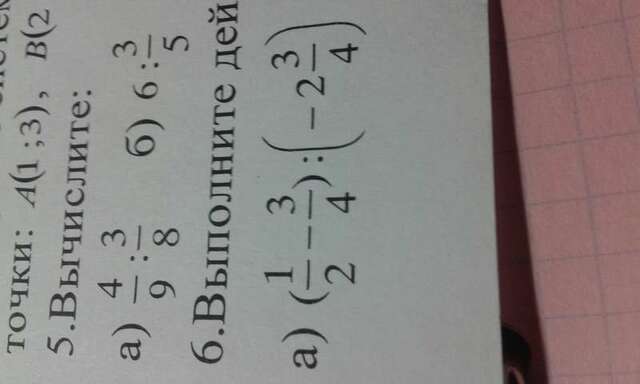 точки: A(1 ;3), B(2
5.Вычислите:
а) 4/9 : 3/8 б) 6 : 3/5
6.Выполните дей
а) (1/2 − 3/4) : (−2 3/4)